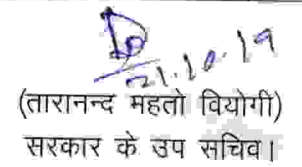 21.10.19
(तारानन्द महतो वियोगी)
सरकार के उप सचिव।